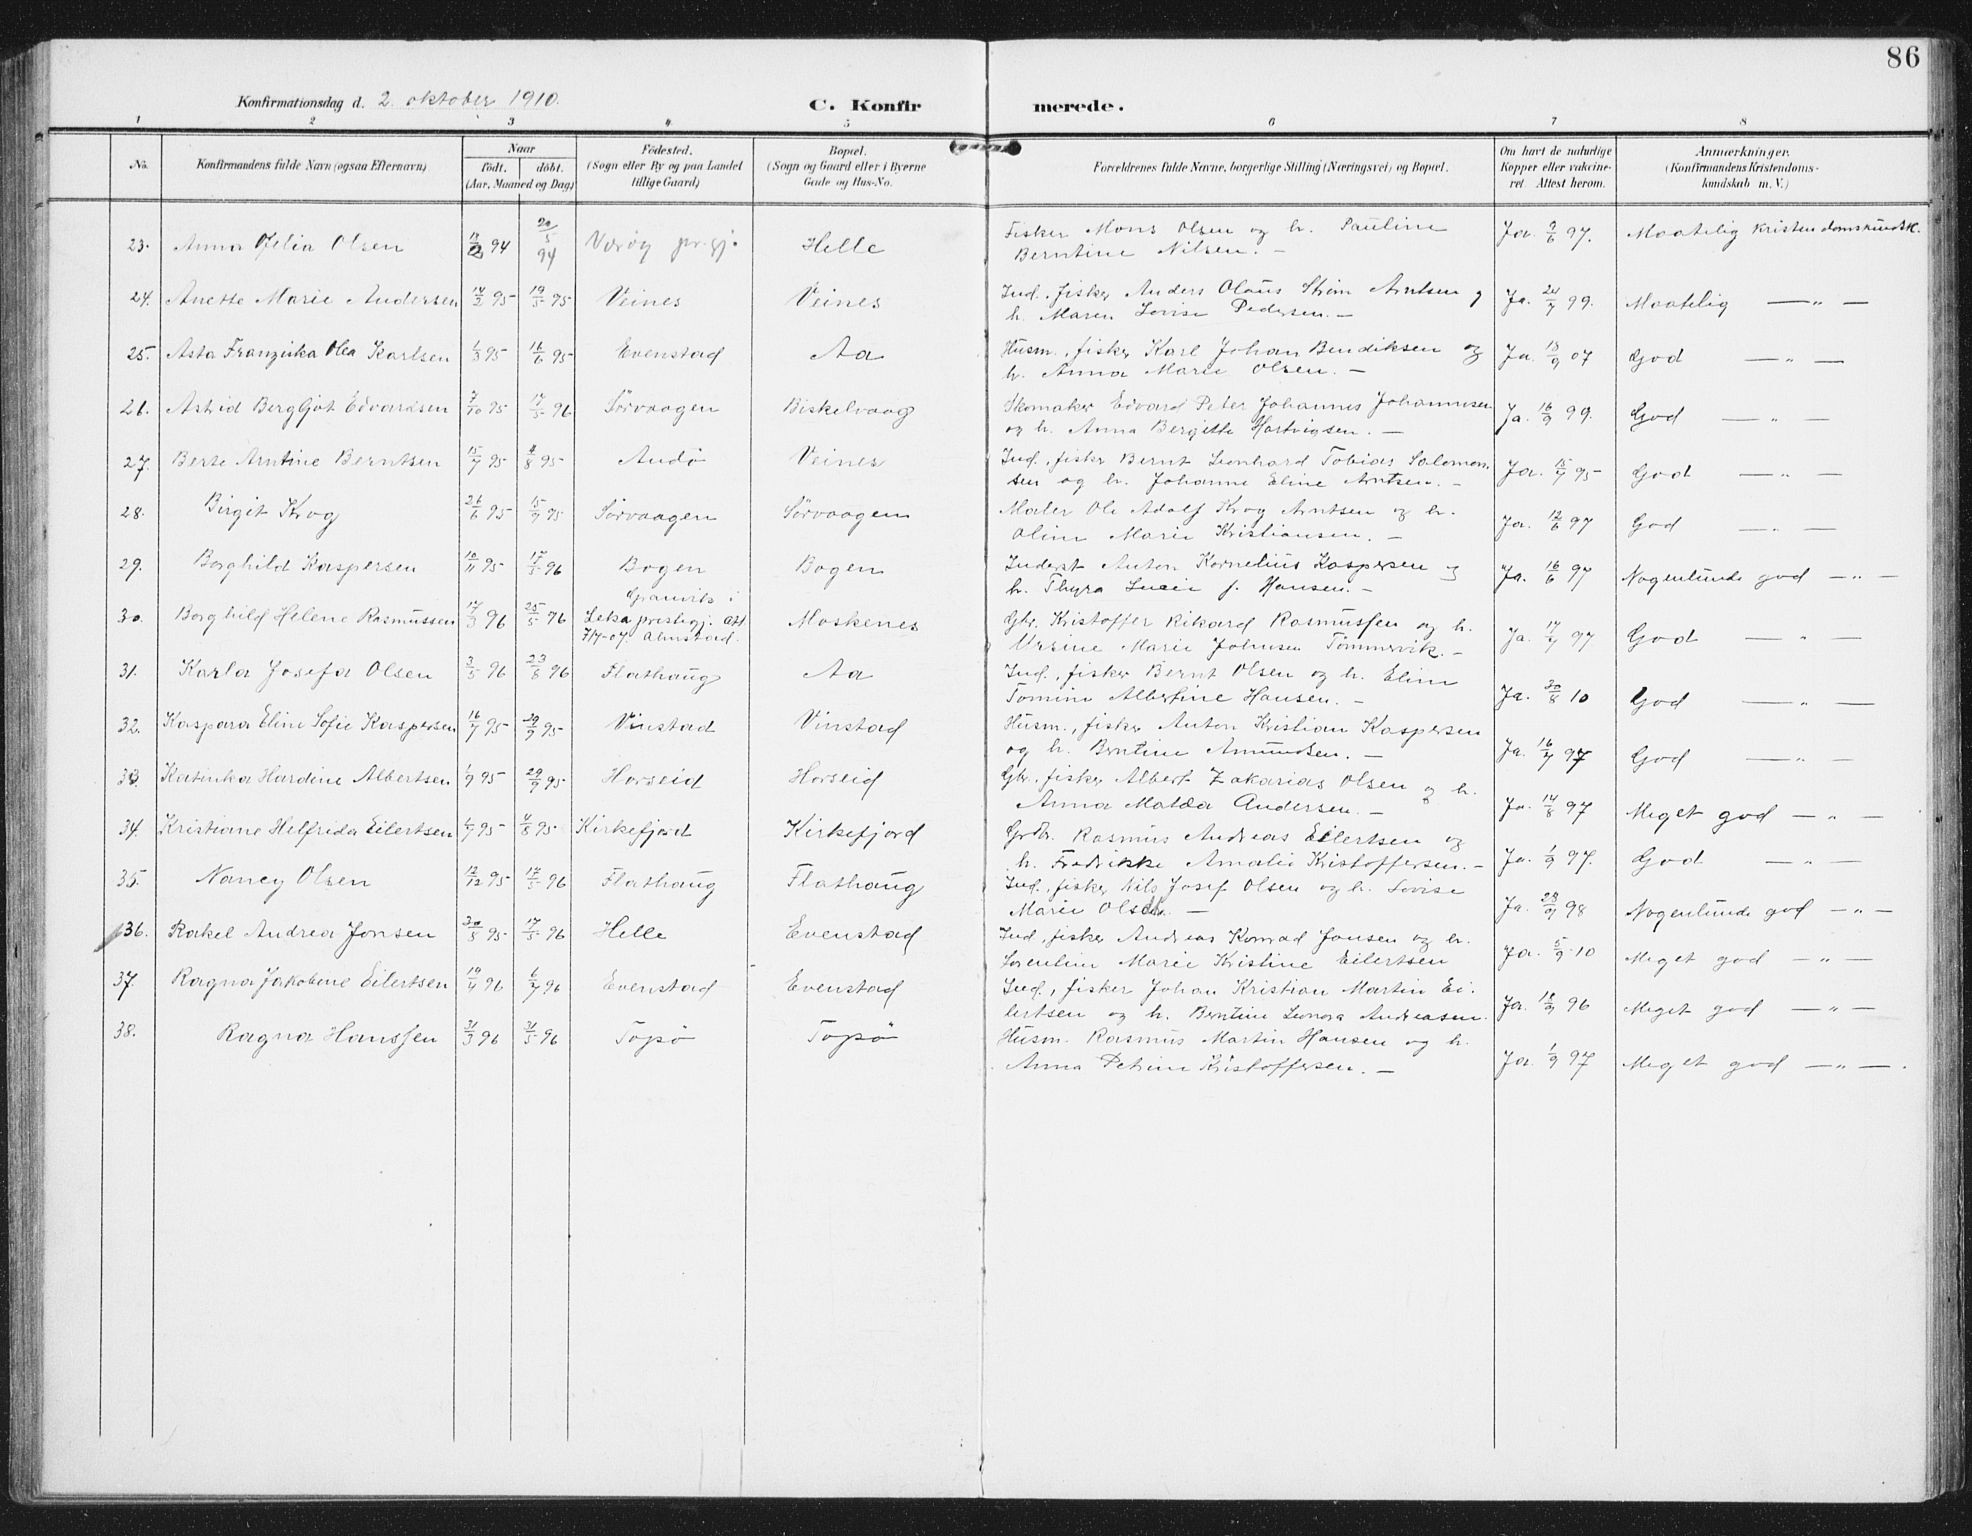 86
Konfirmationsdag d. 2. oktober 1910.
C. Konfir merede.
1 2 3 4 5 6 7 8
No. Konfirmandens fulde Navn (ogsaa Efternavn) Naar Födested. Bopæl. Forældrenes fulde Navne, borgerlige Stilling (Næringsvei) og Bopæl. Om havt de naturlige Anmærkninger.
födt. döbt. (Sogn eller By og paa Landet (Sogn og Gaard eller i Byerne Kopper eller vakcine- (Konfirmandens Kristendoms-
(Aar, Maaned og Dag) tillige Gaard) Gade og Hus-No. ret. Attest herom. kundskab m. V.)
23. Anna Ofelia Olsen 94 20/5 94 Værøy pr.gj. Helle Fisker Mons Olsen og h. Pauline Ja 9/6 97. Maatelig kristendomskundsk.
Berntine Nilsen. —
24. Anette Marie Andersen 14/2 95 19/5 95 Veines Veines Ind., fisker Anders Olaus Strøm Arntsen og Ja. 24/7 99. Maatelig — „ —
h. Maren Lovise Pedersen. —
25. Asta Franziska Olea Karlsen 1/3 95 16/6 95 Evenstad Aa Husm., fisker Karl Johan Bendiksen og Ja. 13/9 07 God — „ —
h. Anna Marie Olsen. —
26. Astrid Bergljot Edvardsen 7/10 95 17/5 96 Sørvaagen Biskelvaag Skomaker Edvard Peter Johannes Johannesen Ja. 16/9 99. God — „ —
og h. Anna Bergette Hartvigsen. —
27. Berte Arntine Berntsen 15/7 95 4/8 95 Andö Veines Ind., fisker Bernt Leonhard Tobias Salomon- Ja. 15/9 95 God — „ —
sen og h. Johanne Eline Arntsen. —
28. Birgit Krog 26/6 95 15/9 95 Sörvaagen Sörvaagen Maler Ole Adolf Krog Arntsen og h. Ja. 12/6 97 God — „ —
Oline Marie Kristiansen. —
29. Borghild Kaspersen 10/11 95 17/5 96 Bogen Bogen Inderst Anton Kornelius Kaspersen og Ja. 16/6 97 Nogenlunde god — „ —
h. Thyra Lucie f. Hansen. —
30. Borghild Helene Rasmussen 17/3 96 25/5 96 Granvik i Moskenes Gbr. Kristoffer Rikard Rasmussen og h. Ja. 17/7 97 God — „ —
Leka prestegj. Att Ursine Marie Johnsen Tømmervik. —
7/7-07. Almstad.
31. Karla Josefa Olsen 3/5 96 23/8 96 Flathaug Aa Ind., fisker Bernt Olsen og h. Eline Ja. 30/8 10 God — „ —
Tomine Albertine Hansen. —
32. Kaspara Eline Sofie Kaspersen 16/7 95 29/9 95 Vinstad Vinstad Husm., fisker Anton Kristian Kaspersen Ja. 16/7 97 God — „ —
og h. Berntine Amundsen. —
33. Katinka Hardine Albertsen 1/9 95 29/9 95 Horseid Horseid Gbr., fisker Albert Zakarias Olsen og h. Ja. 14/8 97 Meget god — „ —
Anna Matea Andersen. —
34. Kristiane Helfrida Eilertsen 1/7 95 4/8 95 Kirkefjord Kirkefjord Grdbr. Rasmus Andreas Eilertsen og Ja. 1/9 97. God — „ —
h. Fredrikke Amalie Kristoffersen. —
35. Nancy Olsen 12/12 95 17/5 96 Flathaug Flathaug Ind., fisker Nils Josef Olsen og h. Lovise Ja. 28/9 98 Nogenlunde god — „ —
Marie Olsen. —
36. Rakel Andrea Jonsen 30/8 95 17/5 96 Helle Evenstad Ind., fisker Andreas Konrad Jonsen og h. Ja. 5/9 10 Meget god — „ —
Sørentine Marie Kristine Eilertsen
37. Ragna Jakobine Eilertsen 19/4 96 6/7 96 Evenstad Evenstad Ind., fisker Johan Kristian Martin Ei- Ja. 18/9 96 Meget god — „ —
lertsen og h. Berntine Leonora Andreasen.
38. Ragna Hanssen 31/3 96 31/5 96 Topsö Topsö Husm. Rasmus Martin Hansen og h. Ja. 1/9 97 Meget god — „ —.
Anna Petrine Kristoffersen. —